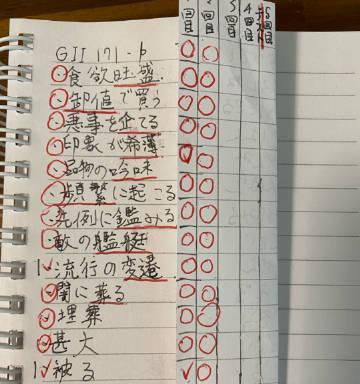 GII 171-b
食欲旺盛
卸値で買う
悪事を企てる
印象が希薄
品物の吟味
頻繁に起こる
先例に鑑みる
敵の艦艇
流行の変遷
闇に葬る
埋葬
甚大
被る
1回目
2回目
3回目
4回目
5回目
テスト